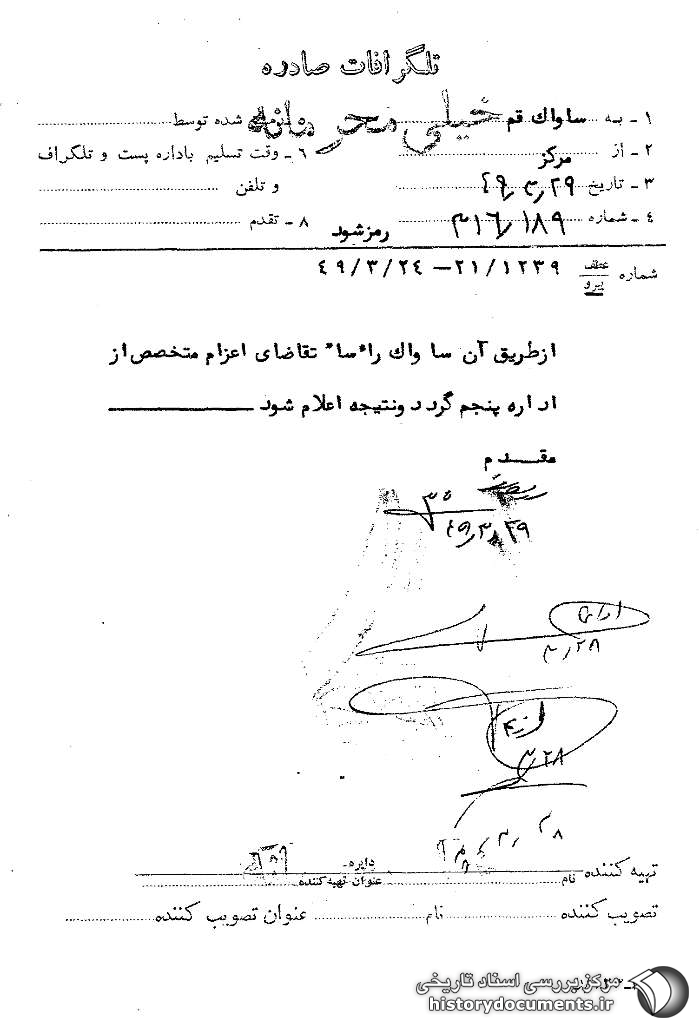 تلگرافات صادره
خیلی محرمانه
۱ـ به ساواك قم
۲ـ از مرکز
۳ـ تاریخ ۴۹٫۳٫۲۹
۴ـ شماره ۳۱۶٫۱۸۹
شده توسط
۶ـ وقت تسلیم باداره پست و تلگراف
و تلفن
۸ـ تقدم
رمزشود
شماره عطف پیرو ۲۱/۱۲۳۹ – ۴۹/۳/۲۴
ازطریق آن ساواك راءسا" تقاضای اعزام متخصص از
اداره پنجم گردد ونتیجه اعلام شود
مقدم
۴۹٫۳٫۲۹
۳٫۲۸
۳٫۲۸
تهیه کننده نام دایره عنوان تهیه کننده
تصویب کننده نام عنوان تصویب کننده
مرکز بررسی اسناد تاریخی
historydocuments.ir